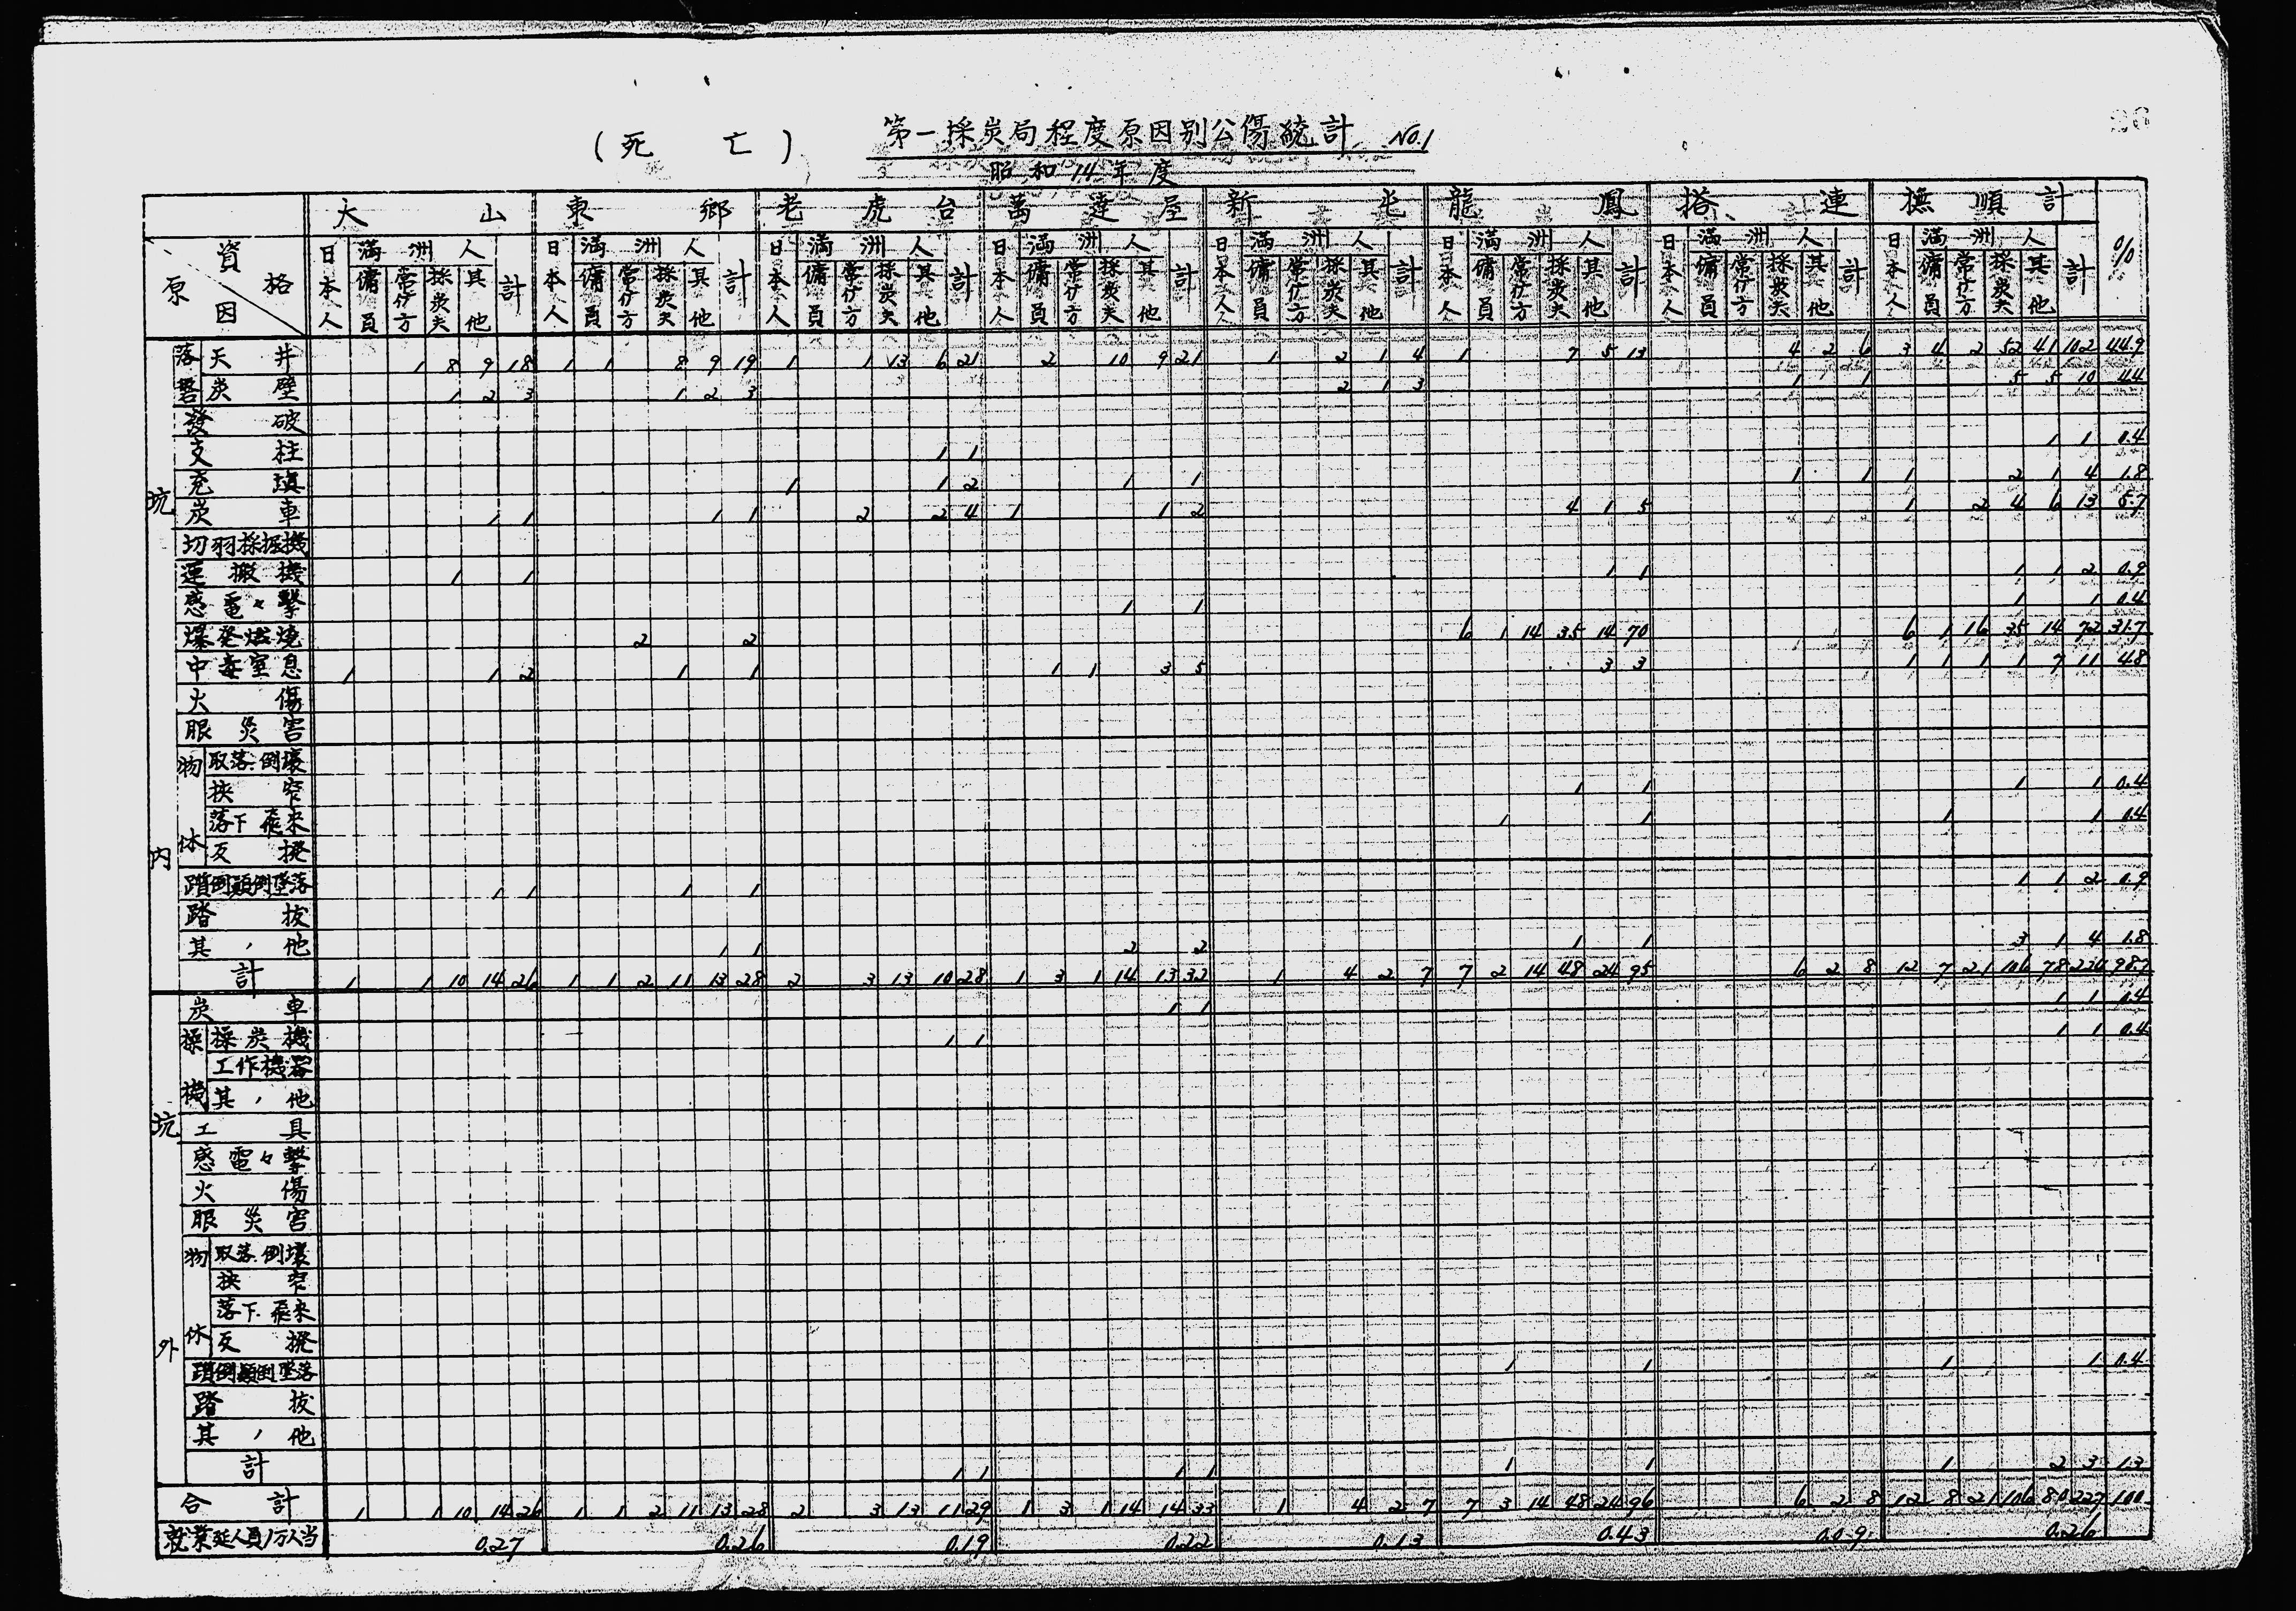 (死 亡) 第一採炭局程度原因別公傷統計 No.1
昭和14年度
大山 東郷 老虎台 萬達屋 新屯 龍鳳 搭連 撫順計 %
資格 原因
日本人 滿洲人 傭員 常傭方 採炭夫 其他 計
日本人 滿洲人 傭員 常傭方 採炭夫 其他 計
日本人 滿洲人 傭員 常傭方 採炭夫 其他 計
日本人 滿洲人 傭員 常傭方 採炭夫 其他 計
日本人 滿洲人 傭員 常傭方 採炭夫 其他 計
日本人 滿洲人 傭員 常傭方 採炭夫 其他 計
日本人 滿洲人 傭員 常傭方 採炭夫 其他 計
日本人 滿洲人 傭員 常傭方 採炭夫 其他 計
坑内
落磐 天井 1 8 9 18 1 1 8 9 19 1 1 13 6 21 2 10 9 21 1 2 1 4 1 7 5 13 4 2 6 3 4 2 52 41 102 44.9
炭壁 1 2 3 1 2 3 2 1 3 1 1 5 5 10 4.4
發破
支柱 1 1 1 1 0.4
充填 1 1 2 1 1 1 1 1 2 1 4 1.8
炭車 1 1 1 1 2 2 4 1 1 2 4 1 5 1 2 4 6 13 5.7
切羽採掘機
運搬機 1 1 1 1 1 1 2 0.9
感電々擊 1 1 1 1 0.4
爆発燃燒 2 2 6 1 14 35 14 70 6 1 16 35 14 72 31.7
中毒窒息 1 1 2 1 1 1 1 3 5 3 3 1 1 1 1 7 11 4.8
火傷
眼災害
物体 取落.倒壞
挾窄 1 1 1 1 0.4
落下飛来 1 1 1 1 0.4
反撥
躓倒顛倒墜落 1 1 1 1 1 1 2 0.9
踏抜
其ノ他 1 1 2 2 1 1 3 1 4 1.8
計 1 1 10 14 26 1 1 2 11 13 28 2 3 13 10 28 1 3 1 14 13 32 1 4 2 7 7 2 14 48 24 95 6 2 8 12 7 21 106 78 224 98.7
坑外
炭車 1 1 1 1 0.4
操機 採炭機 1 1 1 1 0.4
工作機器
其ノ他
工具
感電々擊
火傷
眼災害
物体 取落.倒壞
挾窄
落下.飛来
反撥
躓倒顛倒墜落 1 1 1 1 0.4
踏抜
其ノ他
計 1 1 1 1 1 1 1 2 3 1.3
合計 1 1 10 14 26 1 1 2 11 13 28 2 3 13 11 29 1 3 1 14 14 33 1 4 2 7 7 3 14 48 24 96 6 2 8 12 8 21 106 80 227 100
就業延人員1万人当 0.27 0.26 0.19 0.22 0.13 0.43 0.09 0.26